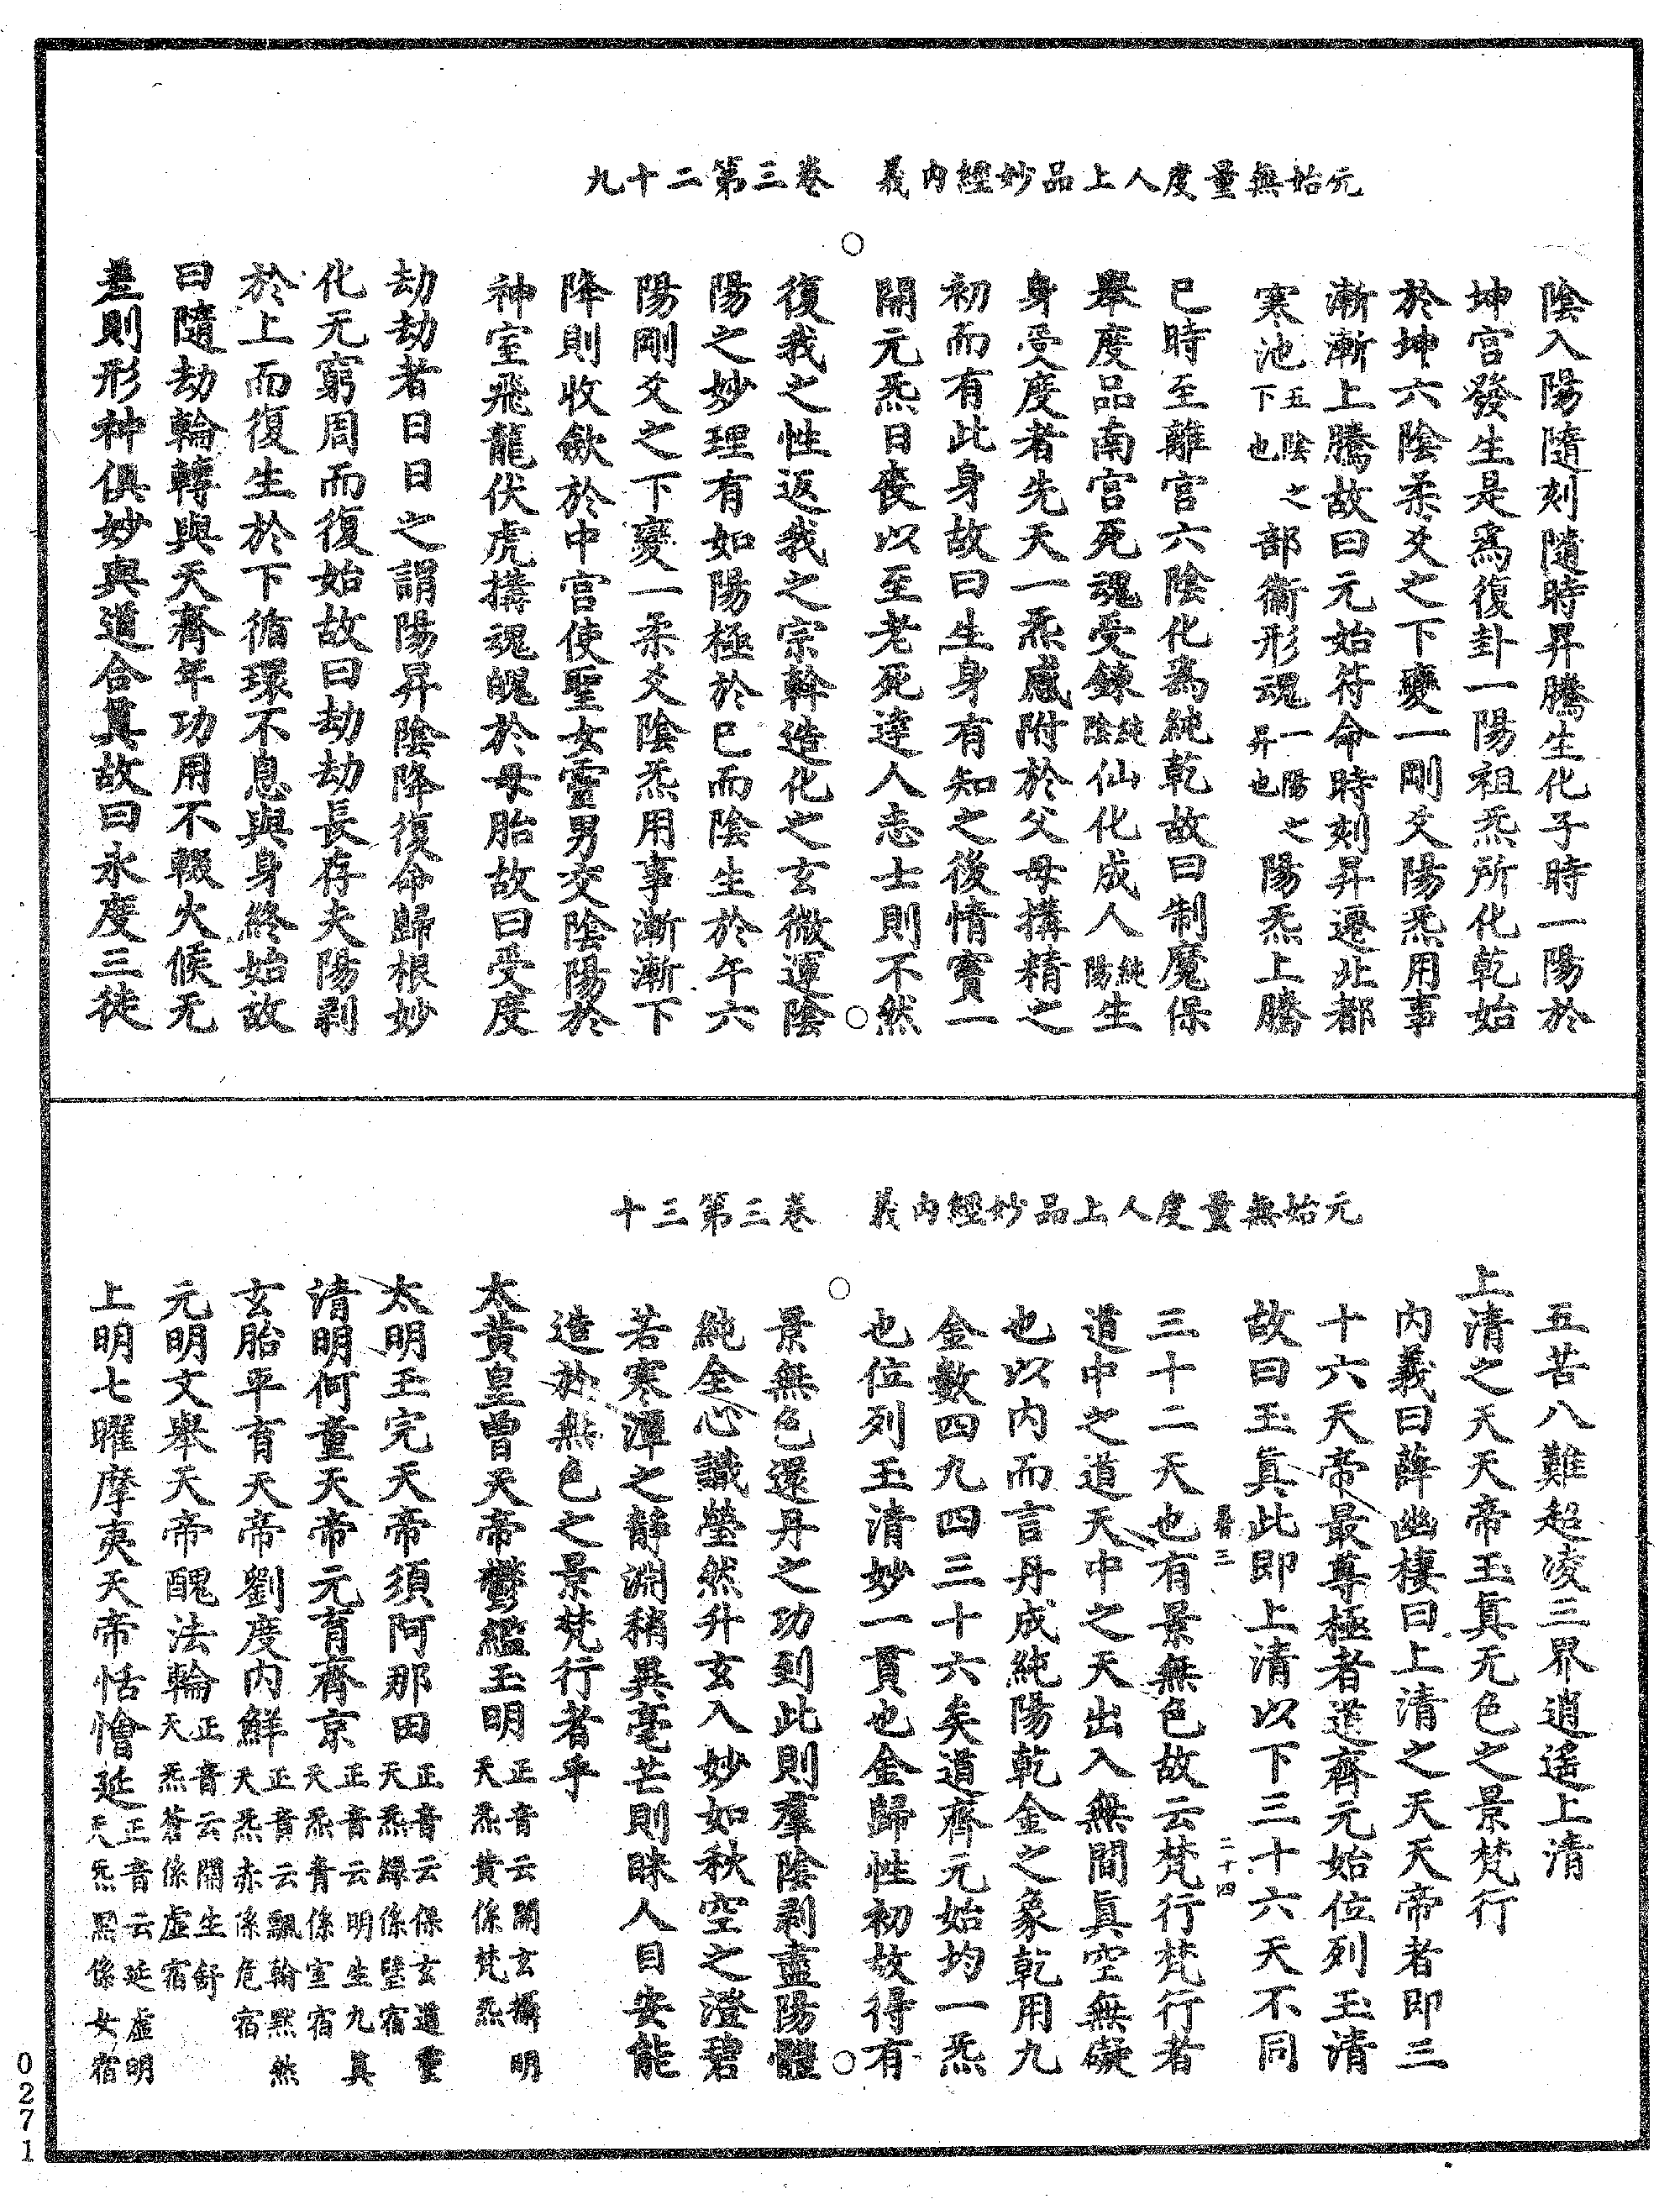 元始無量度人上品妙經內義　卷三第二十九
陰入陽隨刻隨時昇騰生化子時一陽於
坤宮發生是爲復卦一陽祖炁所化乾始
於坤六陰柔爻之下變一剛爻陽炁用事
漸漸上騰故曰元始符命時刻昇遷北都
寒池五陰之下也部衞形魂一陽之昇也陽炁上騰
巳時至離宮六陰化爲純乾故曰制魔保
舉度品南宮死魂受鍊純陰仙化成人純陽生
身受度者先天一炁感附於父母搆精之
初而有此身故曰生身有知之後情竇一
開元炁日喪以至老死達人志士則不然
復我之性返我之宗斡造化之玄微運陰
陽之妙理有如陽極於巳而陰生於午六
陽剛爻之下變一柔爻陰炁用事漸漸下
降則收斂於中宮使聖女靈男交陰陽於
神室飛龍伏虎搆魂魄於母胎故曰受度
劫劫者日日之謂陽昇陰降復命歸根妙
化无窮周而復始故曰劫劫長存夫陽剥
於上而復生於下循環不息與身終始故
曰隨劫輪轉與天齊年功用不輟火候无
差則形神俱妙與道合眞故曰永度三徒
元始無量度人上品妙經內義　卷三第三十
五苦八難超凌三界逍遙上清
上清之天天帝玉眞无色之景梵行
內義曰薛幽棲曰上清之天天帝者即三
十六天帝最尊極者道齊元始位列玉清
故曰玉眞此即上清以下三十六天不同
三十二天也有景無色故云梵行梵行者
道中之道天中之天出入無間眞空無礙
也以內而言丹成純陽乾金之象乾用九
金數四九四三十六矣道齊元始均一炁
也位列玉清妙一貫也金歸性初故得有
景無色還丹之功到此則羣陰剥盡陽體
純全心識瑩然升玄入妙如秋空之澄碧
若寒潭之靜淵稍異毫芒則昧人目安能
造於無色之景梵行者乎
太黃皇曾天帝鬱𨰠玉明正音云開玄攝明天炁黃係梵炁
太明玉完天帝須阿那田正音云保玄道重天炁綠係壁宿
清明何童天帝元育齊京正音云明生九眞天炁青係室宿
玄胎平育天帝劉度內鮮正音云飄翰黙然天炁赤係危宿
元明文舉天帝醜法輪正音云開生舒天炁蒼係虛宿
上明七曜摩夷天帝恬懀延正音云延虛明天炁黑係女宿
0271